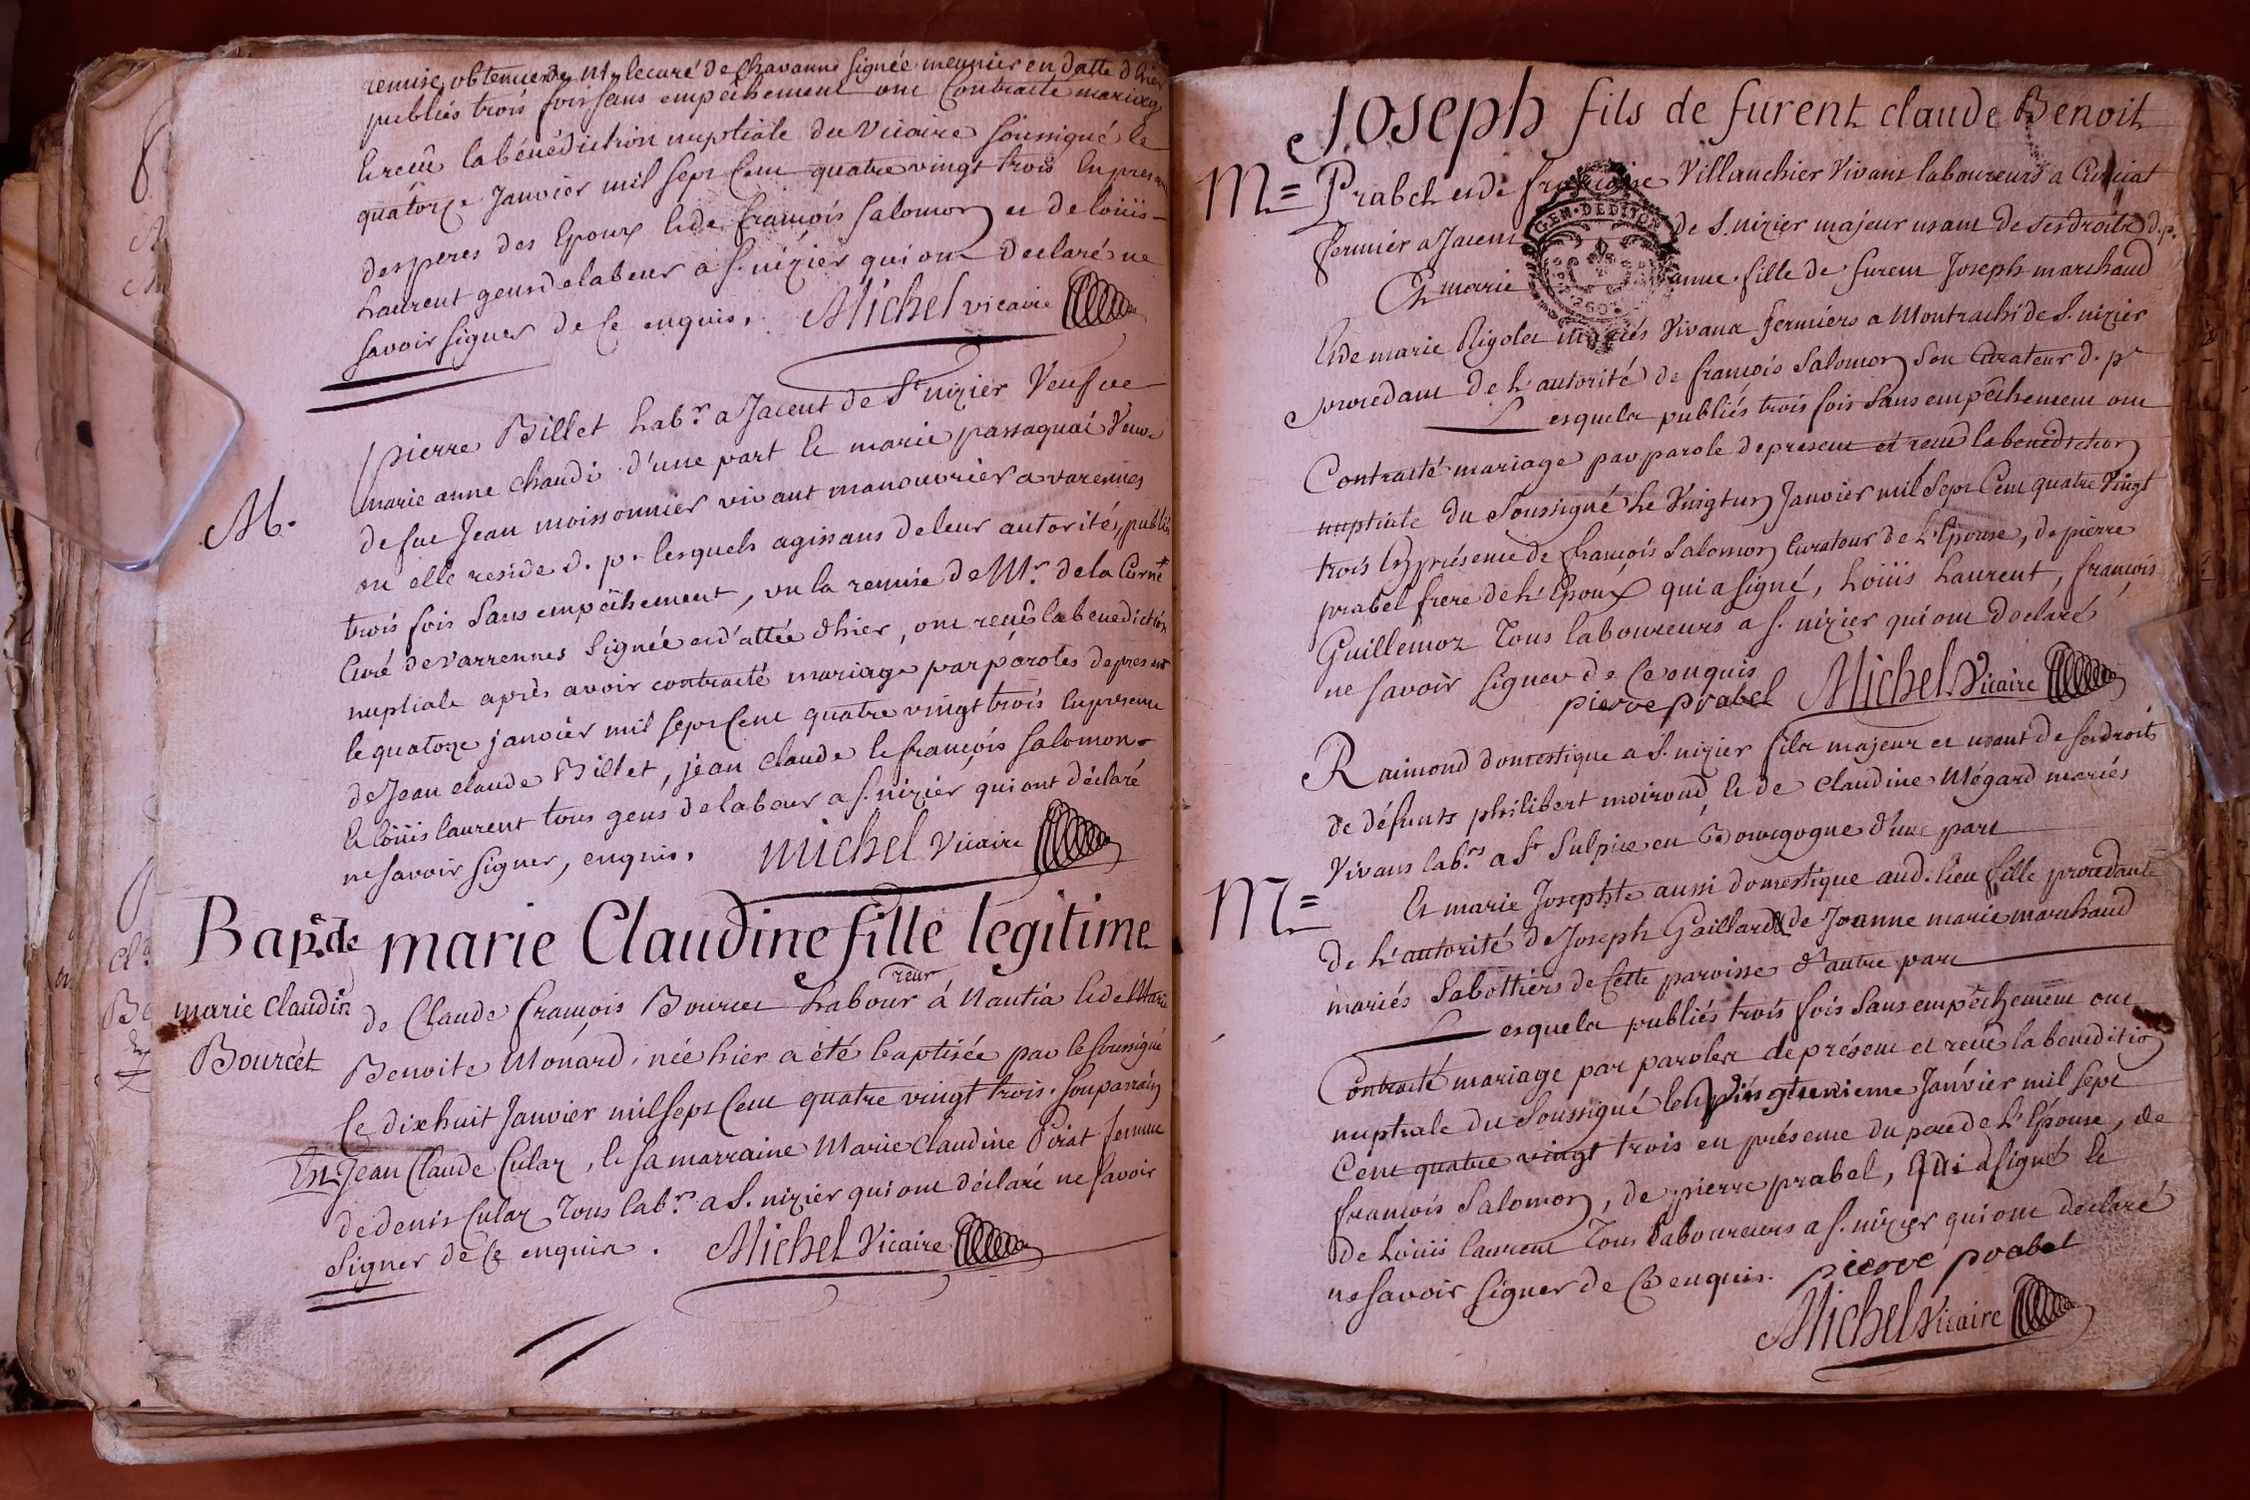 remise obtenue de Mr. le curé de Chavanne signée meunier en datte d'hier
publiés trois fois sans empêchement ont Contracté mariage
et reçû la bénédiction nuptiale du Vicaire soussigné le
quatorze Janvier mil sept Cent quatre vingt trois En presence
des peres des Epoux et de françois Salomon et de loüis
Laurent gens de labeur a S. nizier qui ont declaré ne
Savoir signer de Ce enquis. Michel vicaire
M.
pierre Billet Labr. a Jacent de St nizier Veufve
marie anne chaudi d'une part et marie passaquai Veuve
de fue Jean moissonnier vivant manouvrier a varennes
ou elle reside d. p. lesquels agissans de leur autorité, publiés
trois fois Sans empêchement, vu la remise de Mr. de la Corne
Curé de varrennes Signée et d'attée d'hier, ont reçû la benediction
nuptiale après avoir contracté mariage par paroles de present
le quatorze janvier mil sept Cent quatre vingt trois En presence
de Jean claude Billet, jean Claude et françois Salomon
et loüis laurent tous gens de labeur a S. nizier qui ont déclaré
ne Savoir signer, enquis. Michel Vicaire
Bap.e de marie Claudine fille legitime
marie Claudine
Bourcet
de Claude françois Bourcet Laboureur á Nantia et de Marie
Benoite Monard, née hier a été baptisée par le soussigné
Ce dixhuit Janvier mil sept Cent quatre vingt trois. son parrain
Est Jean Claude Culaz, et sa marraine Marie Claudine Poriat femme
de denis Culaz Tous labrs. a S. nizier qui ont déclaré ne savoir
Signer de Ce enquis. Michel Vicaire
Joseph fils de furent claude Benoit
M= Prabel et de françoise Villanchier Vivans laboureurs a Curciat
fermier a Jacent de S. nizier majeur usant de ses droits d. p.
Et marie anne fille de furent Joseph marchand
Et de marie Rigolet mariés Vivans fermiers a Montrachi de S. nizier
procedant de L'autorité de françois Salomon son Curateur d. p.
Lesquels publiés trois fois Sans empêchement ont
Contracté mariage par parole de present et reçu la benediction
nuptiale du Soussigné Le Vingt un Janvier mil Sept Cent quatre Vingt
trois En présence de françois Salomon Curateur de L'Epouse, de pierre
prabel frere de L'Epoux qui a signé, Loüis Laurent, françois
Guillemoz Tous laboureurs a S. nizier qui ont declaré
ne savoir signer de Ce enquis
pierre prabel Michel Vicaire
Raimond domestique a S. nizier fils majeur et usant de ses droits
de défunts philibert moiroud et de Claudine Mégard mariés
Vivans labrs. a St Sulpice en Bourgogne d'une part
M= Et marie Josephte aussi domestique aud. lieu fille procedante
de L'autorité de Joseph Gaillard & de Jeanne marie marchand
mariés Sabottiers de Cette paroisse d'autre part
Lesquels publiés trois fois Sans empêchement ont
Contracté mariage par paroles de présent et reçû la benedition
nuptiale du Soussigné le Vingtunieme Janvier mil sept
Cent quatre vingt trois en présence du pere de L'Epouse, de
françois Salomon, de pierre prabel, Qui a signé et
de Loüis laurent Tous laboureurs a S. nizier qui ont declaré
ne Savoir signer de Ce enquis. pierre prabel
Michel Vicaire